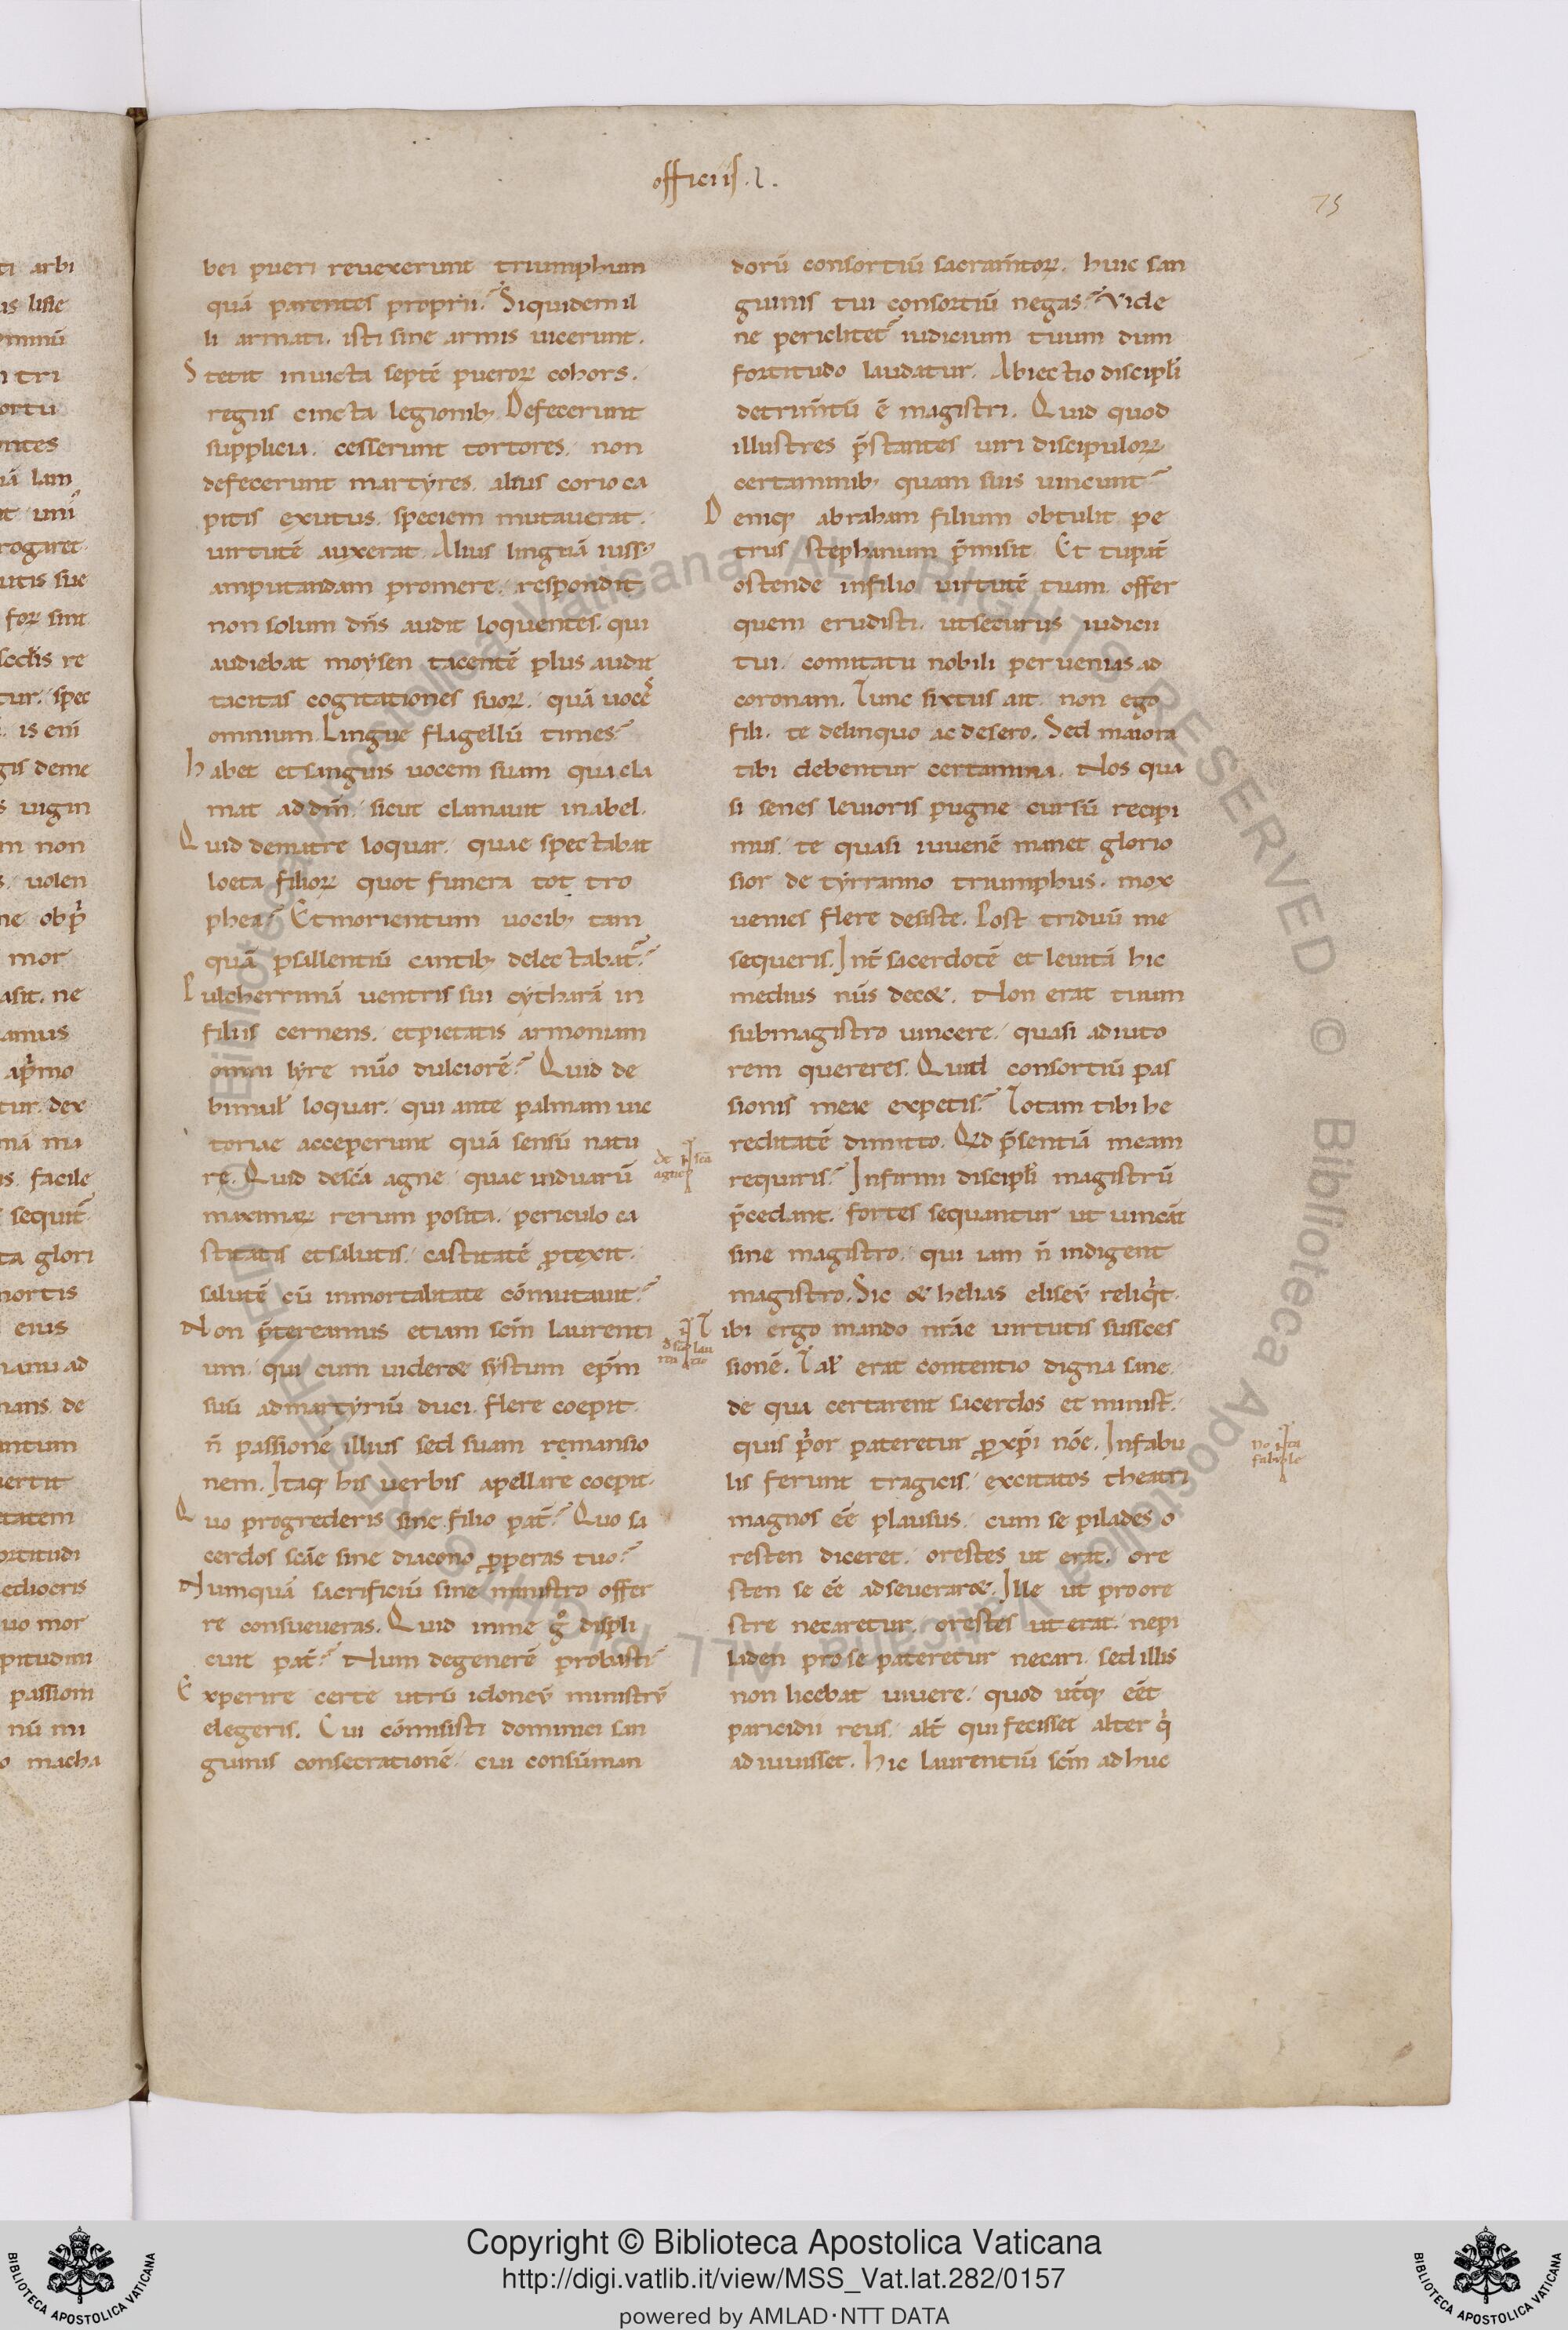 officiis . l .
75
bei pueri revexerunt triumphum
quā parentes proprii? Siquidem il
li armati. isti sine armis vicerunt.
Stetit invicta septē pueroꝝ cohors.
regiis cincta legionib; Defecerunt
supplicia. cesserunt tortores. non
defecerunt martyres. alius corio ca
pitis exutus. speciem mutaverat.
virtutē auxerat. Alius linguā iuss;
amputandam promere. respondit
non solum dn̄s audit loquentes. qui
audiebat moysen tacentē plus audit
tacitas cogitationes suoꝝ. quā vocēs
omnium. Lingue flagellū times?
habet et sanguis vocem suam qua cla
mat ad dm̄. sicut clamavit in abel.
Quid de matre loquar. quae spectabat
loeta filioꝝ quot funera tot tro
phea? Et morientum vocib; tam
quā psallentiū cantib; delectabat̄?
Pulcherrimā ventris sui cytharā in
filiis cernens. et pietatis armoniam
omni lyre num̄o dulciorē? Quid de
bimulis loquar. qui ante palmam vic
toriae acceperunt quā sensū natu
re. Quid de sc̄a agne. quae in duarū
maximaꝝ rerum posita. periculo ca
stitatis et salutis. castitatē ꝓtexit.
salutē cū inmortalitate cōmutavit?
Non p̄tereamus etiam sc̄m laurenti
um. qui cum videret systum ep̄m
suū ad martyriū duci. flere coepit.
n̄ passionē illius sed suam remansio
nem. Itaq; his verbis apellare coepit.
Quo progrederis sine filio pat̄? Quo sa
cerdos sc̄ae sine diacono ꝓperas tuo?
Numquā sacrificiū sine ministro offer
re consueveras. Quid in me g̊ displi
cuit pat̄? Num degenerē probasti?
Experire certe utrū idoneū ministrū
elegeris. Cui cōmisisti dominici san
guinis consecrationē. cui consūman
de sc̄a
agne
d̄ sc̄o lau
rentio
dorū consortiū sacram̄toꝝ. huic san
guinis tui consortiū negas? Vide
ne periclitet̄ iudicium tuum dum
fortitudo laudatur. Abiectio discipl̄i
detrim̄tū ē magistri. Quid quod
illustres p̄stantes viri discipuloꝝ
certaminib; quam suis vincunt?
Deniq; abraham filium obtulit. pe
trus stephanum p̄misit. Et tu pat̄
ostende in filio virtutē tuam. offer
quem erudisti. ut securus iudicii
tui. comitatu nobili pervenias ad
coronam. Tunc sixtus ait. non ego
fili. te delinquo ac desero. Sed maiora
tibi debentur certamina. Nos qua
si senes levioris pugne cursū recipi
mus. te quasi iuvenē manet glorio
sior de tyrranno triumphus. mox
venies flere desiste. Post triduū me
sequeris. Int̄ sacerdotē et levitā hic
medius nūs decet. Non erat tuum
sub magistro vincere. quasi adiuto
rem quereres. Quid consortiū pas
sionis meae expetis? Totam tibi he
reditatē dimitto. Qd p̄sentiā meam
requiris? Infirmi discipl̄i magistrū
p̄cedant. fortes sequantur ut vincāt
sine magistro. qui iam n̄ indigent
magistro. Sic et helias eliseū reliq̇t.
Tibi ergo mando nr̄ae virtutis succes
sionē. Tal̄ erat contentio digna sane.
de qua certarent sacerdos et minist̄.
quis p̄or pateretur ꝓ xp̄i nōe. In fabu
lis ferunt tragicis. excitatos theatri
magnos ēē plausus. cum se pilades o
resten diceret. orestes ut erat. ore
sten se ēē adseveraret. Ille ut pro ore
ste necaretur. orestes ut erat. ne pi
laden pro se pateretur necari. sed illis
non licebat vivere. quod ut̄q; eēt
paricidii reus. alt̄ qui fecisset alter q̇
adiuvisset. hic laurentiū sc̄m ad huc
nota
fabule
Copyright © Biblioteca Apostolica Vaticana
http://digi.vatlib.it/view/MSS_Vat.lat.282/0157
powered by AMLAD·NTT DATA
BIBLIOTECA APOSTOLICA VATICANA
BIBLIOTECA APOSTOLICA VATICANA